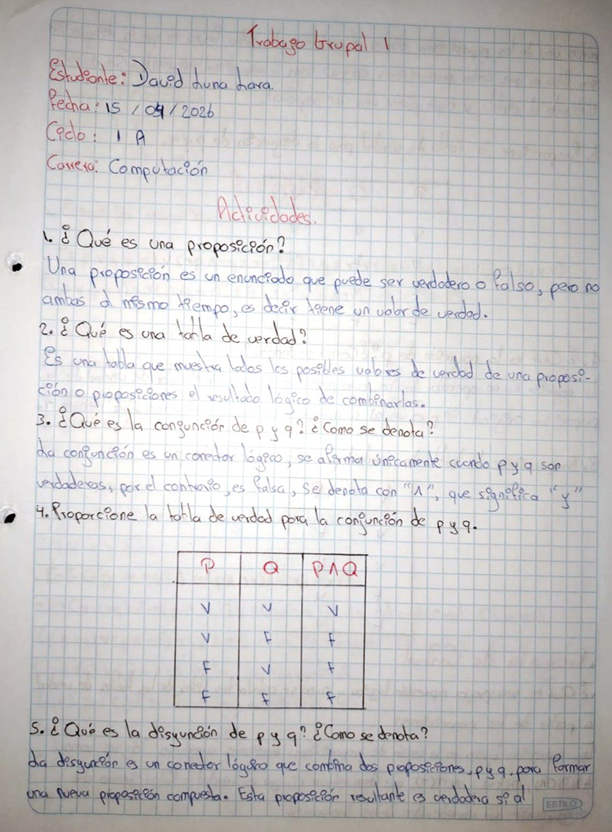 Trabajo Grupal 1
Estudiante: David Luna Lara.
Fecha: 15 / 04 / 2026
Ciclo: 1 A
Carrera: Computación
Actividades.
1. ¿Qué es una proposición?
Una proposición es un enunciado que puede ser verdadero o falso, pero no
ambos al mismo tiempo, es decir tiene un valor de verdad.
2. ¿Qué es una tabla de verdad?
Es una tabla que muestra todos los posibles valores de verdad de una proposi-
ción o proposiciones el resultado lógico de combinarlas.
3. ¿Qué es la conjunción de p y q? ¿Como se denota?
La conjunción es un conector lógico, se afirma únicamente cuando p y q son
verdaderos, por el contrario, es falsa, se denota con "∧", que significa "y"
4. Proporcione la tabla de verdad para la conjunción de p y q.
P Q P∧Q
V V V
V F F
F V F
F F F
5. ¿Qué es la disyunción de p y q? ¿Como se denota?
La disyunción es un conector lógico que combina dos proposiciones, p y q, para formar
una nueva proposición compuesta. Esta proposición resultante es verdadera si al
ESTILO